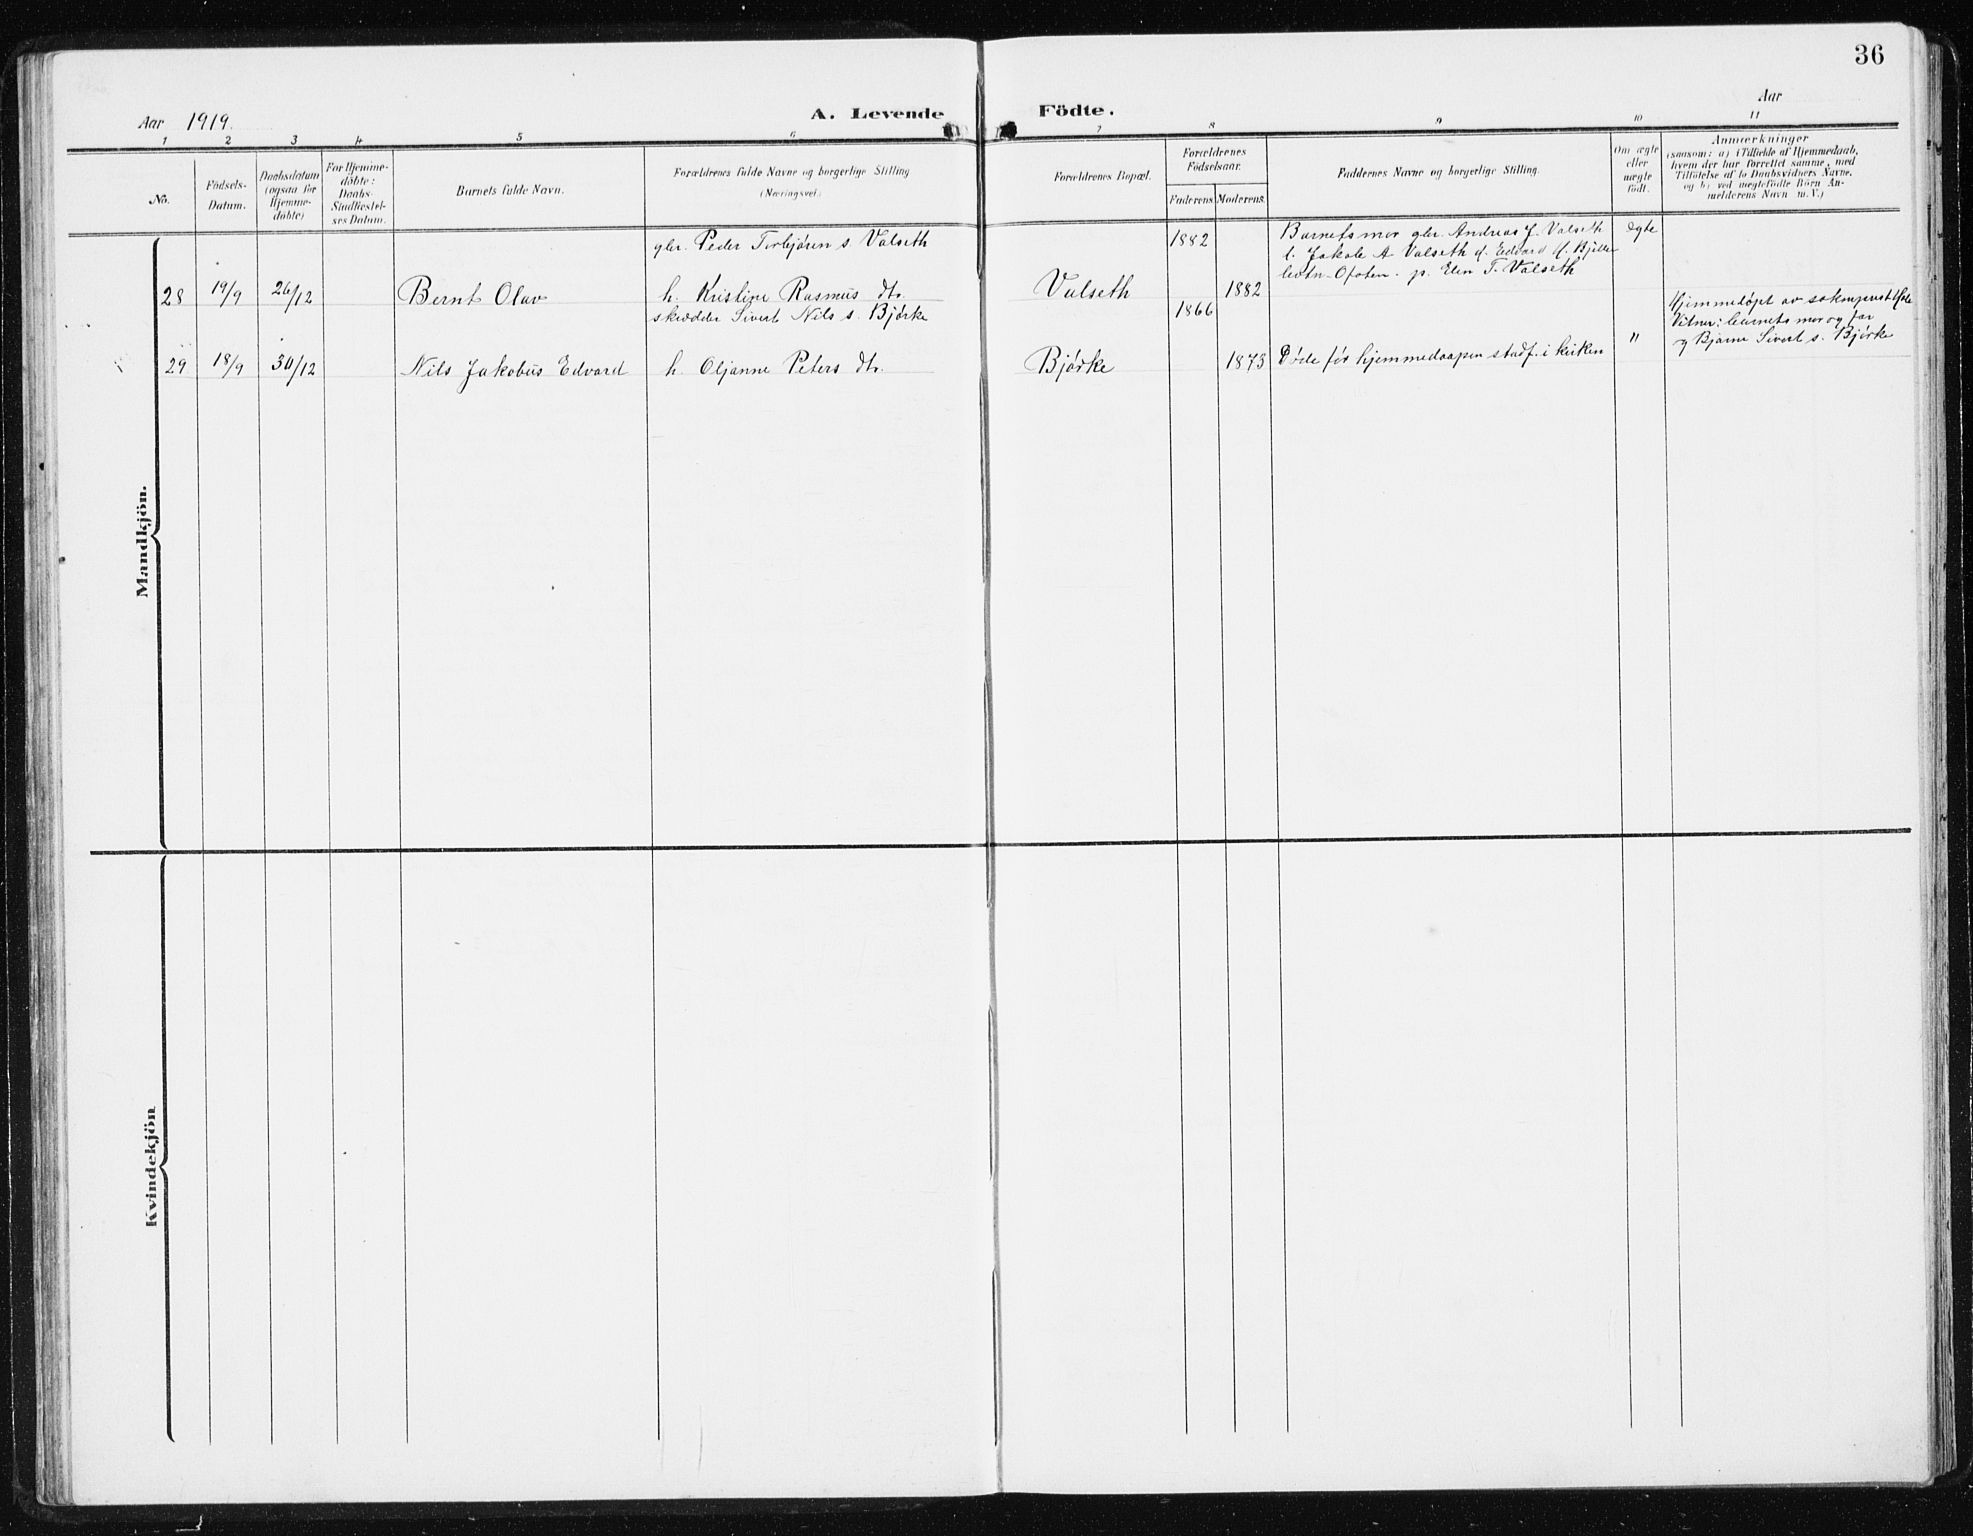 36
Aar 1919.
A. Levende Födte.
Aar
1 2 3 4 5 6 7 8 9 10 11
No.
Födsels-
Datum.
Daabsdatum
(ogsaa for
Hjemme-
döbte)
For Hjemme-
döbte:
Daabs-
Stadfæstel-
ses Datum.
Barnets fulde Navn.
Forældrenes fulde Navne og borgerlige Stilling
(Næringsvei.)
Forældrenes Bopæl.
Forældrenes
Födselsaar.
Faderens. Moderens.
Faddernes Navne og borgerlige Stilling.
Om ægte
eller
uægte
födt.
Anmærkninger
(saasom: a) i Tilfælde af Hjemmedaab,
hvem der har forrettet samme, med
Tilföielse af to Daabsvidners Navne,
og b) ved uægtefödte Börn An-
melderens Navn m. V.)
Mandkjön.
gbr. Peder Torbjörn s. Valseth
1882
Barnets mor gbr. Andreas J. Valseth
ægte
l. Jakob A Valseth d. Edvard
Ofoten. p. Elen T. Valseth
28 19/9 26/12 Bernt Olav h. Kristine Rasmus dtr. Valseth 1882
skrædder Sivert Nils s. Bjørke
1866
Hjemmedøpt av sokneprest
Vitner: barnets mor og far
og Bjarne Sivert s. Bjørke
29 18/9 30/12 Nils Jakobus Edvard h. Oljanne Peters dtr. Bjørke 1873 Døde før hjemmedaapen stadf. i kirken "
Kvindekjön